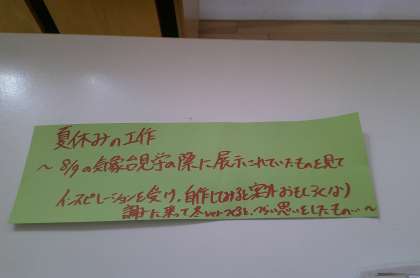 夏休みの工作
～8/9の気象台見学の際に展示されていたものを見て
インスピレーションを受け、自作してみると案外おもしろくなり
調子に乗って冬verつくると、つらい思いをしたもの…～